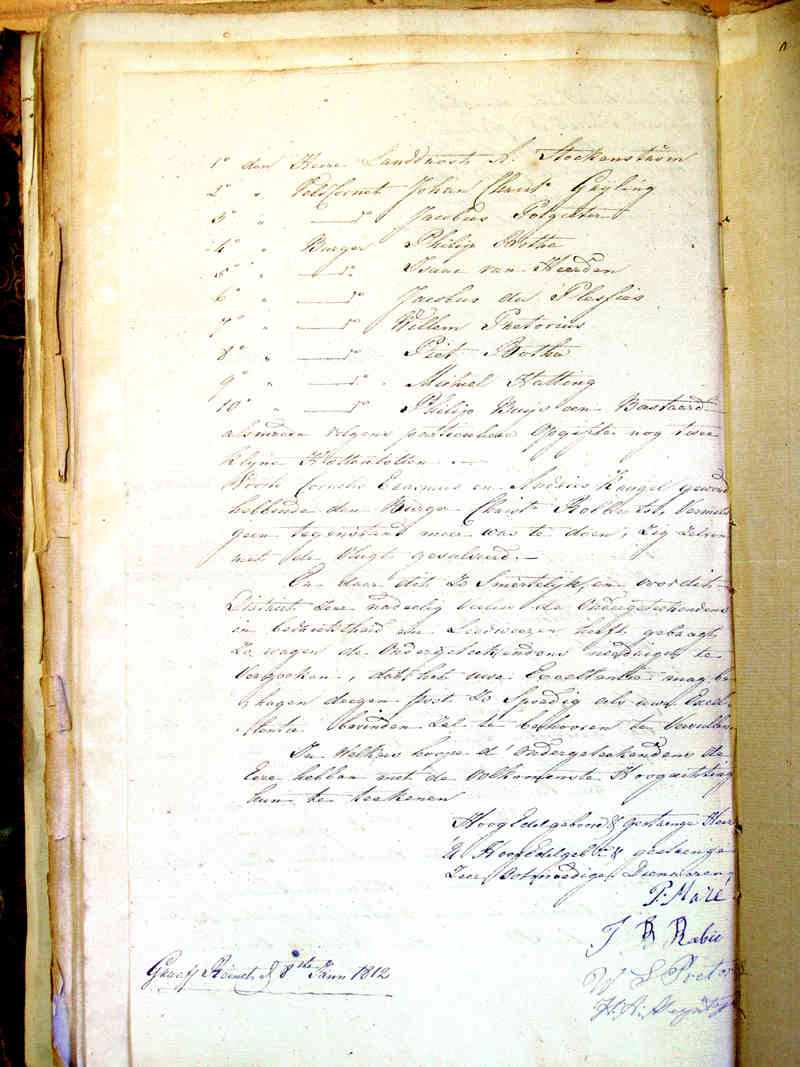 1º den Heere Landdrost A. Stockenstrom
2º " Veldcornet Johan Christ. Greyling
3º " ———dº Jacobus Potgieter
4º " Burger Philip Botha
5º " ———dº Isaac van Heerden
6º " ———dº Jacobus du Plessies
7º " ———dº Willem Pretorius
8º " ———dº Piet Botha
9º " ———dº Michiel Hatting
10º " ———dº Philip Buijs een Bastaard
alsmeede volgens particuliere opgifte nog twee
klyne Hottentotten.—
Cornelis Erasmus en Andries Krugel
hebbende den Burger Christ. Botha
geen tegenstand meer was te doen, zig zelven
met de vlugt gesalveerd.—
En daar dit zo smertelyk, en voor dit
District zeer nadeelig de Ondergeteekendens
in en Leedweezen heeft gebragt
Zo wagen de Ondergeteekendens needrigst te
Verzoeken, dat het uwe Excellentie mag be-
hagen deezen post zo spoedig als uwe Excel-
lentie bevinden zal te behooren te vervullen
In Welkers hoope d'Ondergeteekendens de
Eere hebben met de volkomenste Hoogachting
hun te teekenen
Hoog Edelgebooren & gestrenge Heer
U Hoog Edelgeb. & gestrenge
Zeer ootmoedige Dienaaren
P. Maré
J B Rabie
W S Pretorius
Graaff Reinet d 8ste Jann 1812